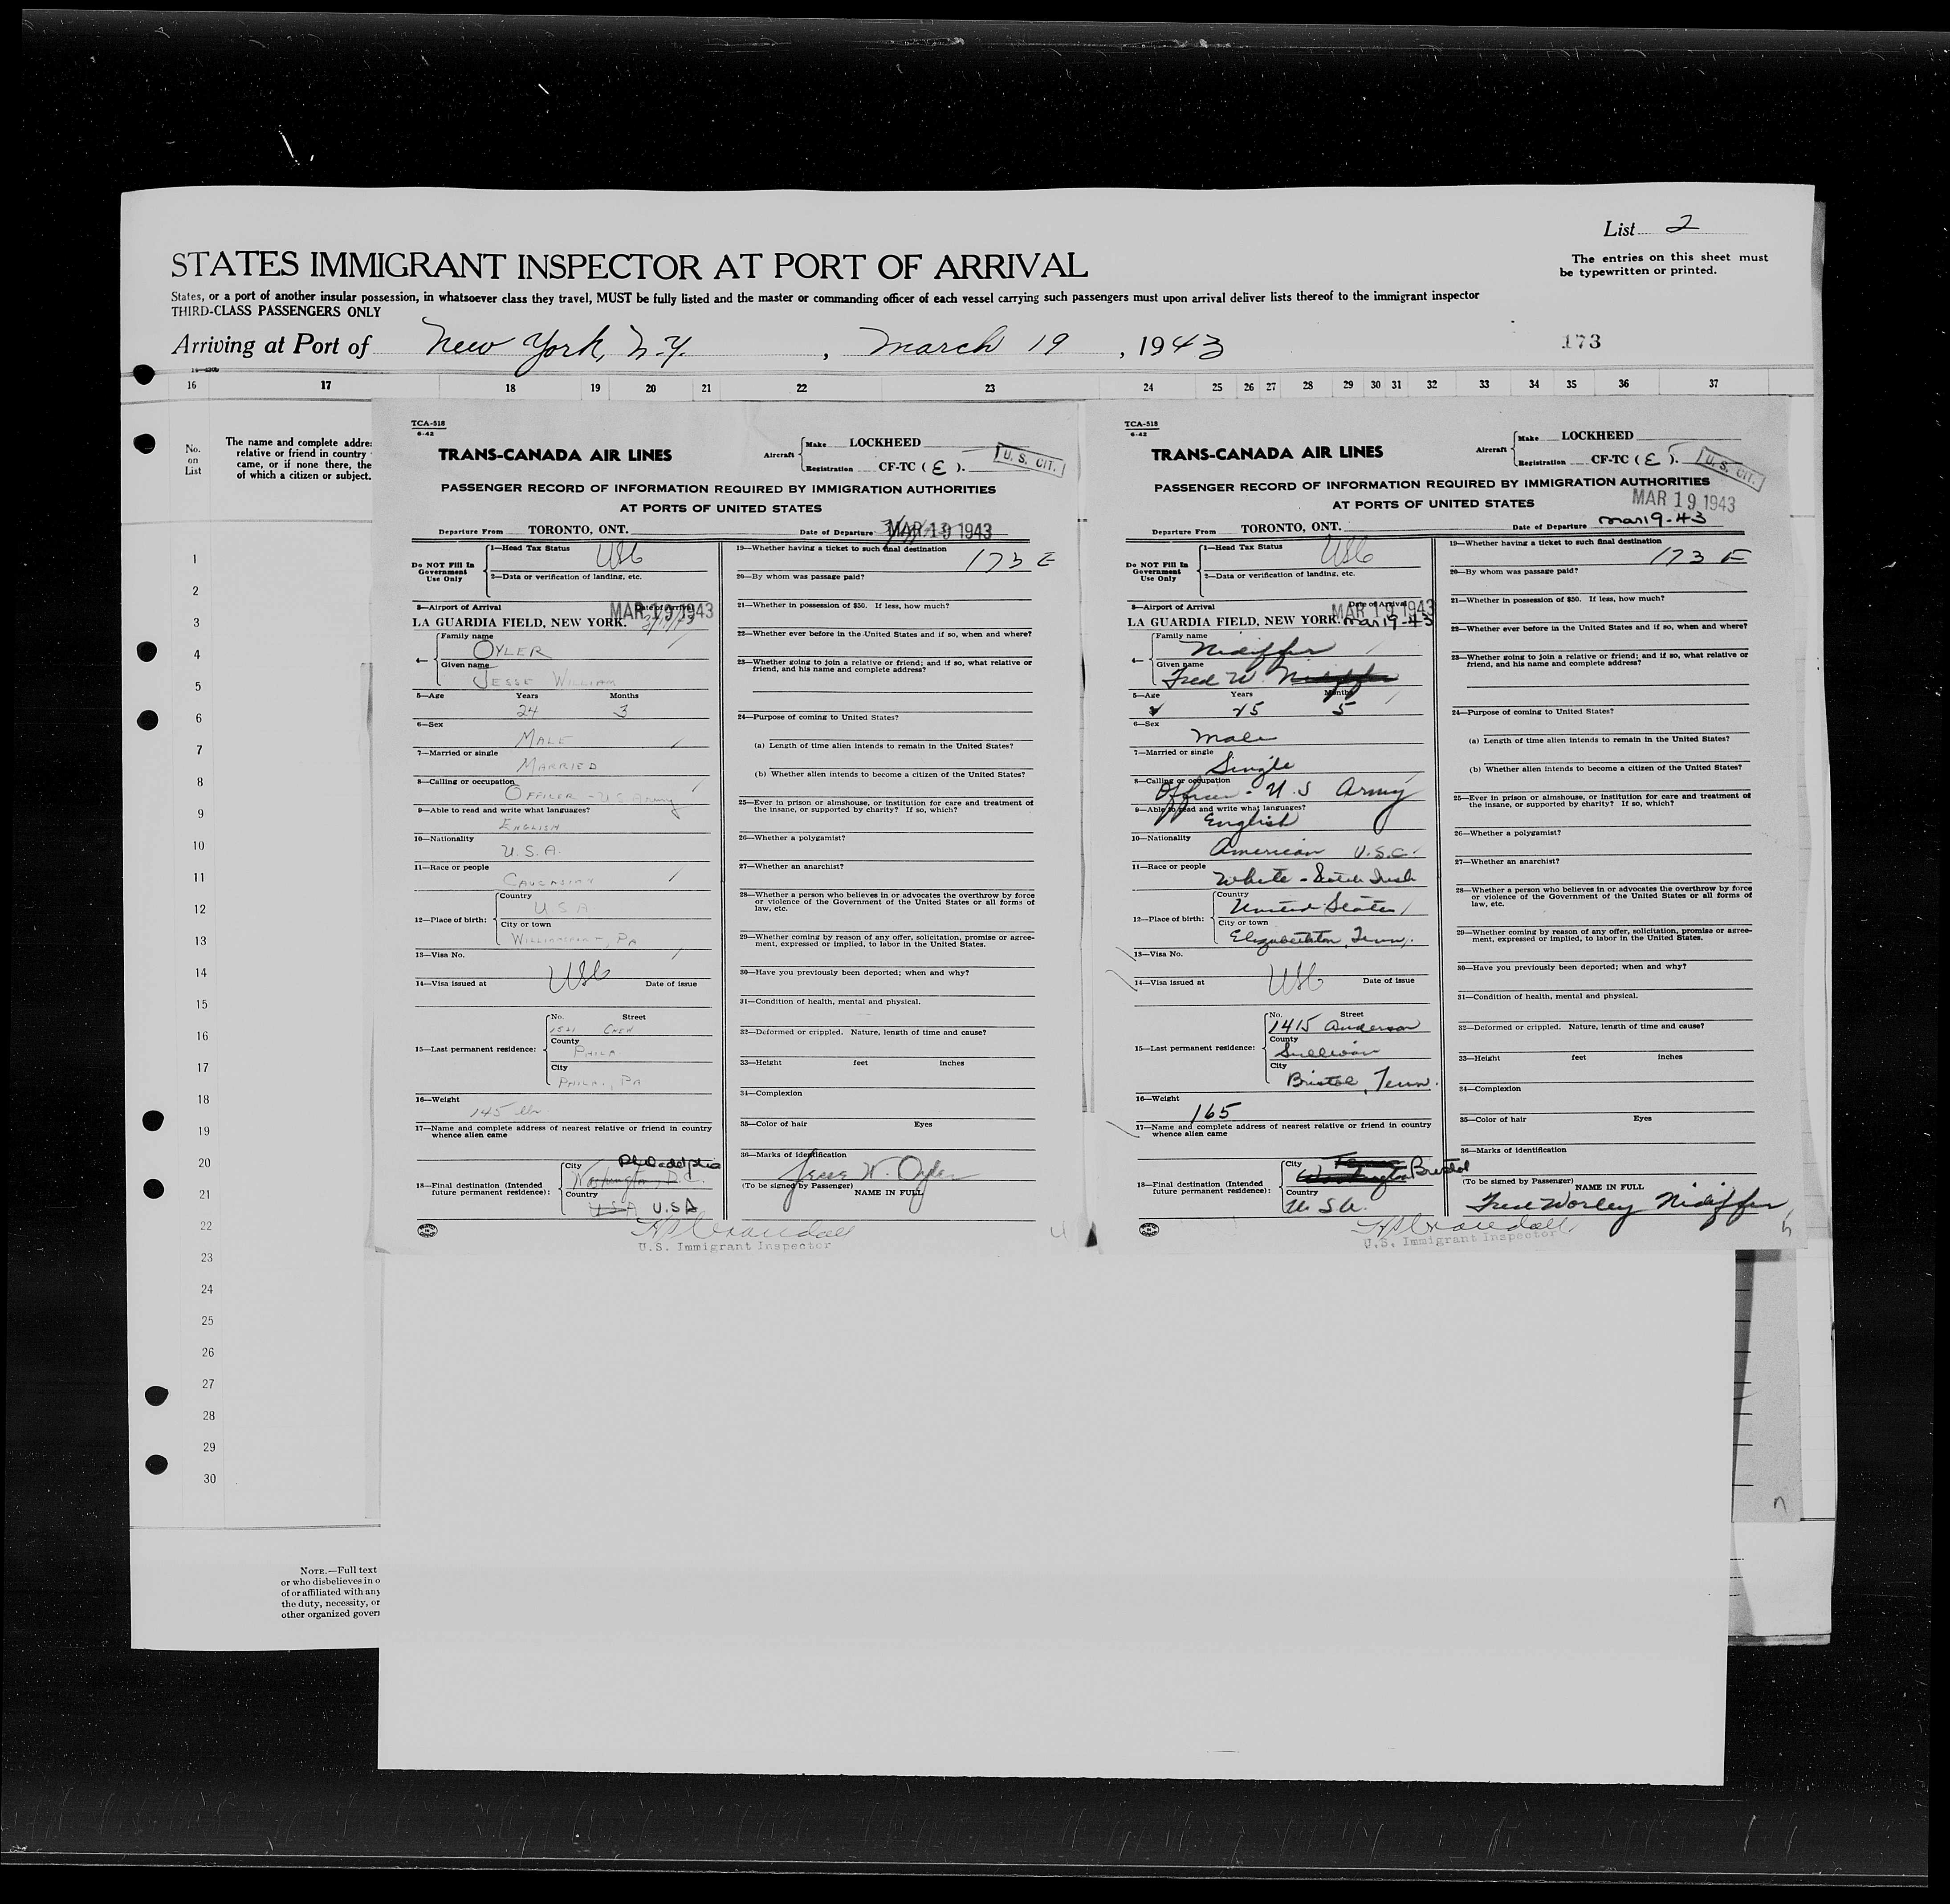 List 2
STATES IMMIGRANT INSPECTOR AT PORT OF ARRIVAL
The entries on this sheet must
be typewritten or printed.
States, or a port of another insular possession, in whatsoever class they travel, MUST be fully listed and the master or commanding officer of each vessel carrying such passengers must upon arrival deliver lists thereof to the immigrant inspector
THIRD-CLASS PASSENGERS ONLY
Arriving at Port of New York, N.Y. , March 19 , 1943
173
16 17 18 19 20 21 22 23 24 25 26 27 28 29 30 31 32 33 34 35 36 37
No.
on
List
The name and complete addre
relative or friend in country
came, or if none there, the
of which a citizen or subject.
1
2
3
4
5
6
7
8
9
10
11
12
13
14
15
16
17
18
19
20
21
22
23
24
25
26
27
28
29
30
NOTE.—Full text
or who disbelieves in o
of or affiliated with any
the duty, necessity, or
other organized govern
TCA-518
6-42
TRANS-CANADA AIR LINES
Aircraft
Make LOCKHEED
Registration CF-TC (E).
U. S. CIT.
PASSENGER RECORD OF INFORMATION REQUIRED BY IMMIGRATION AUTHORITIES
AT PORTS OF UNITED STATES
Departure From TORONTO, ONT.
Date of Departure MAR 19 1943
Do NOT Fill In
Government
Use Only
1—Head Tax Status USC
2—Data or verification of landing, etc.
3—Airport of Arrival Date of Arrival
LA GUARDIA FIELD, NEW YORK. MAR 19 1943
4—
Family name
OYLER
Given name
JESSE WILLIAM
5—Age Years Months
24 3
6—Sex
MALE
7—Married or single
MARRIED
8—Calling or occupation
OFFICER - U S Army
9—Able to read and write what languages?
ENGLISH
10—Nationality
U.S.A.
11—Race or people
CAUCASIAN
12—Place of birth:
Country
U S A
City or town
WILLIAMSPORT, PA
13—Visa No.
USC
14—Visa issued at Date of issue
15—Last permanent residence:
No. Street
CHEW
County
PHILA
City
PHILA., PA
16—Weight
145 lbs.
17—Name and complete address of nearest relative or friend in country
whence alien came
18—Final destination (Intended
future permanent residence):
City Philadelphia
Washington, D.C.
Country
USA U.S.A
19—Whether having a ticket to such final destination
173 E
20—By whom was passage paid?
21—Whether in possession of $50. If less, how much?
22—Whether ever before in the United States and if so, when and where?
23—Whether going to join a relative or friend; and if so, what relative or
friend, and his name and complete address?
24—Purpose of coming to United States?
(a) Length of time alien intends to remain in the United States?
(b) Whether alien intends to become a citizen of the United States?
25—Ever in prison or almshouse, or institution for care and treatment of
the insane, or supported by charity? If so, which?
26—Whether a polygamist?
27—Whether an anarchist?
28—Whether a person who believes in or advocates the overthrow by force
or violence of the Government of the United States or all forms of
law, etc.
29—Whether coming by reason of any offer, solicitation, promise or agree-
ment, expressed or implied, to labor in the United States.
30—Have you previously been deported; when and why?
31—Condition of health, mental and physical.
32—Deformed or crippled. Nature, length of time and cause?
33—Height feet inches
34—Complexion
35—Color of hair Eyes
36—Marks of identification
Jesse W. Oyler
(To be signed by Passenger) NAME IN FULL
U.S. Immigrant Inspector
TCA-518
6-42
TRANS-CANADA AIR LINES
Aircraft
Make LOCKHEED
Registration CF-TC (E).
U. S. CIT.
PASSENGER RECORD OF INFORMATION REQUIRED BY IMMIGRATION AUTHORITIES
AT PORTS OF UNITED STATES
MAR 19 1943
Departure From TORONTO, ONT.
Date of Departure Mar 19-43
Do NOT Fill In
Government
Use Only
1—Head Tax Status USC
2—Data or verification of landing, etc.
3—Airport of Arrival Date of Arrival
MAR 19 1943
LA GUARDIA FIELD, NEW YORK. Mar 19-43
4—
Family name
Nidiffer
Given name
Fred W. Nidiffer
5—Age Years Months
25 5
6—Sex
Male
7—Married or single
Single
8—Calling or occupation
Officer - U.S Army
9—Able to read and write what languages?
English
10—Nationality
American U.S.C.
11—Race or people
White - Scotch Irish
12—Place of birth:
Country
United States
City or town
Elizabethton, Tenn.
13—Visa No.
USC
14—Visa issued at Date of issue
15—Last permanent residence:
No. Street
1415 Anderson
County
Sullivan
City
Bristol, Tenn.
16—Weight
165
17—Name and complete address of nearest relative or friend in country
whence alien came
18—Final destination (Intended
future permanent residence):
City
Washington Bristol
Country
U.S.A.
19—Whether having a ticket to such final destination
173 E
20—By whom was passage paid?
21—Whether in possession of $50. If less, how much?
22—Whether ever before in the United States and if so, when and where?
23—Whether going to join a relative or friend; and if so, what relative or
friend, and his name and complete address?
24—Purpose of coming to United States?
(a) Length of time alien intends to remain in the United States?
(b) Whether alien intends to become a citizen of the United States?
25—Ever in prison or almshouse, or institution for care and treatment of
the insane, or supported by charity? If so, which?
26—Whether a polygamist?
27—Whether an anarchist?
28—Whether a person who believes in or advocates the overthrow by force
or violence of the Government of the United States or all forms of
law, etc.
29—Whether coming by reason of any offer, solicitation, promise or agree-
ment, expressed or implied, to labor in the United States.
30—Have you previously been deported; when and why?
31—Condition of health, mental and physical.
32—Deformed or crippled. Nature, length of time and cause?
33—Height feet inches
34—Complexion
35—Color of hair Eyes
36—Marks of identification
(To be signed by Passenger) NAME IN FULL
Fred Worley Nidiffer
U.S. Immigrant Inspector